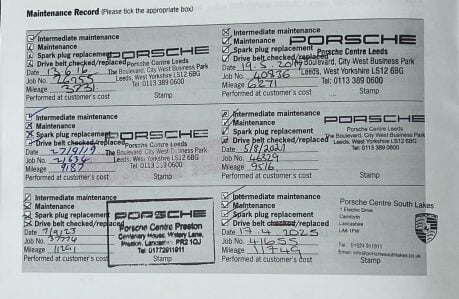 Maintenance Record (Please tick the appropriate box)
Intermediate maintenance
Maintenance
Spark plug replacement
Drive belt checked/replaced
Date 13.6.16
Job No. 26955
Mileage 3731
Performed at customer's cost
PORSCHE
Porsche Centre Leeds
The Boulevard, City West Business Park
Leeds, West Yorkshire LS12 6BG
Tel: 0113 389 0600
Stamp
Intermediate maintenance
Maintenance
Spark plug replacement
Drive belt checked/replaced
Date 19.5.2017
Job No. 40836
Mileage 6271
Performed at customer's cost
PORSCHE
Porsche Centre Leeds
The Boulevard, City West Business Park
Leeds, West Yorkshire LS12 6BG
Tel: 0113 389 0600
Stamp
Intermediate maintenance
Maintenance
Spark plug replacement
Drive belt checked/replaced
Date 27/9/19
Job No. 21634
Mileage 9187
Performed at customer's cost
PORSCHE
Porsche Centre Leeds
The Boulevard, City West Business Park
Leeds, West Yorkshire LS12 6BG
Tel: 0113 389 0600
Stamp
Intermediate maintenance
Maintenance
Spark plug replacement
Drive belt checked/replaced
Date 5/8/2021
Job No. 46329
Mileage 9516
Performed at customer's cost
PORSCHE
Porsche Centre Leeds
The Boulevard, City West Business Park
Leeds, West Yorkshire LS12 6BG
Tel: 0113 389 0600
Stamp
Intermediate maintenance
Maintenance
Spark plug replacement
Drive belt checked/replaced
Date 7/9/23
Job No. 37774
Mileage 11261
Performed at customer's cost
PORSCHE
Porsche Centre Preston
Centenary House, Watery Lane,
Preston, Lancashire PR2 1QJ
Tel: 01772911911
Stamp
Intermediate maintenance
Maintenance
Spark plug replacement
Drive belt checked/replaced
Date 17.4.2025
Job No. 41655
Mileage 11749
Performed at customer's cost
Porsche Centre South Lakes
1 Electric Drive
Carnforth
Lancashire
LA6 1FW
Tel: 01524 911911
Stamp